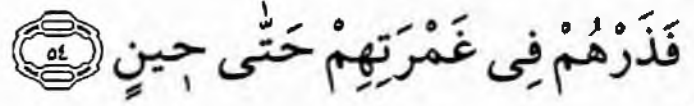 فَذَرْهُمْ فِى غَمْرَتِهِمْ حَتَّىٰ حِينٍ ٥٤